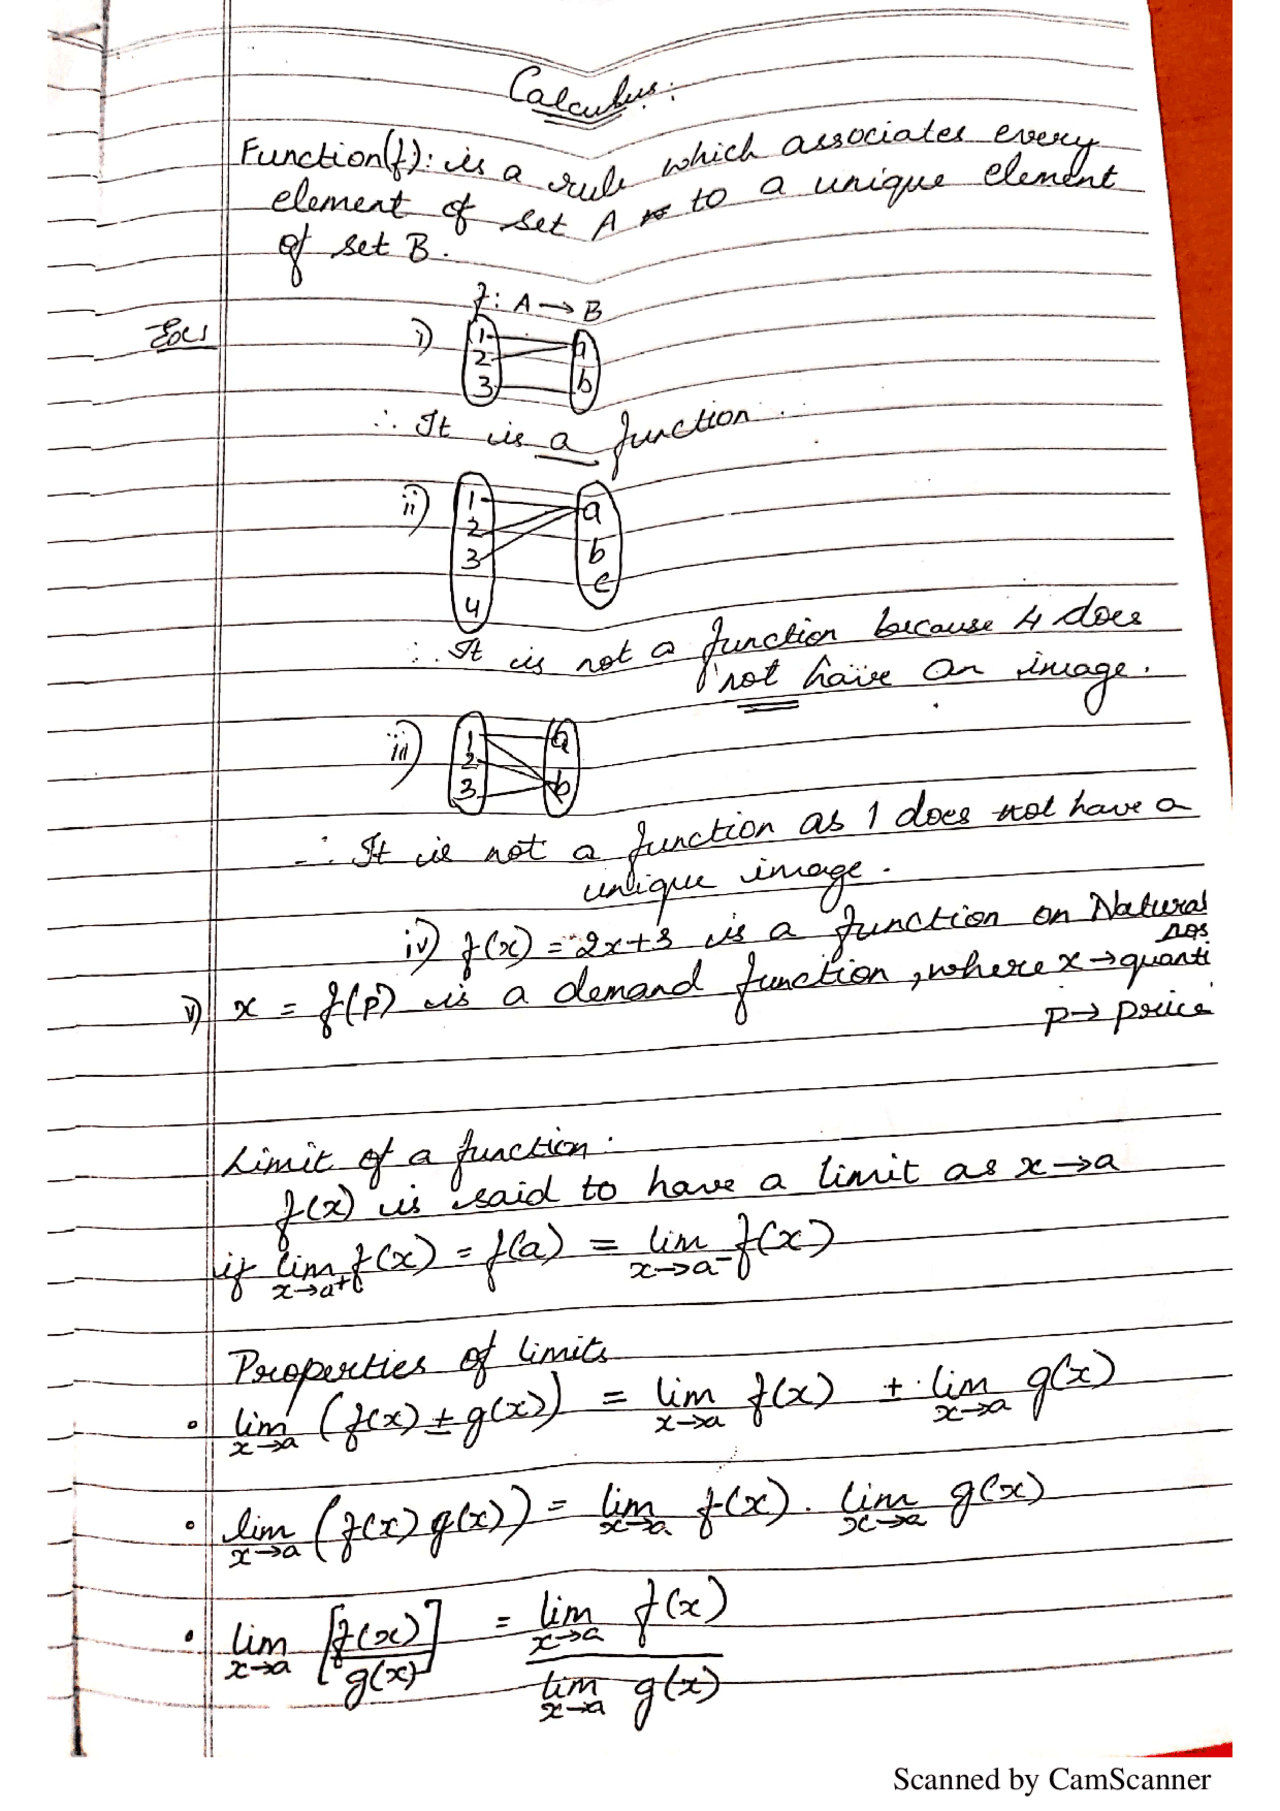 Calculus:
Function(f): is a rule which associates every
element of set A to a unique element
of set B.
f: A → B
Exs
i) 1 2 3 a b
∴ It is a function.
ii) 1 2 3 4 a b c
∴ It is not a function because 4 does
not have an image.
iii) 1 2 3 a b
∴ It is not a function as 1 does not have a
unique image.
iv) f(x) = 2x+3 is a function on Natural
nos
v) x = f(p) is a demand function, where x → quanti
p → price
Limit of a function:
f(x) is said to have a limit as x→a
if lim x→a+ f(x) = f(a) = lim x→a- f(x)
Properties of limits
• lim x→a (f(x) ± g(x)) = lim x→a f(x) ± lim x→a g(x)
• lim x→a (f(x) g(x)) = lim x→a f(x) . lim x→a g(x)
• lim x→a [f(x)/g(x)] = lim x→a f(x) / lim x→a g(x)
Scanned by CamScanner